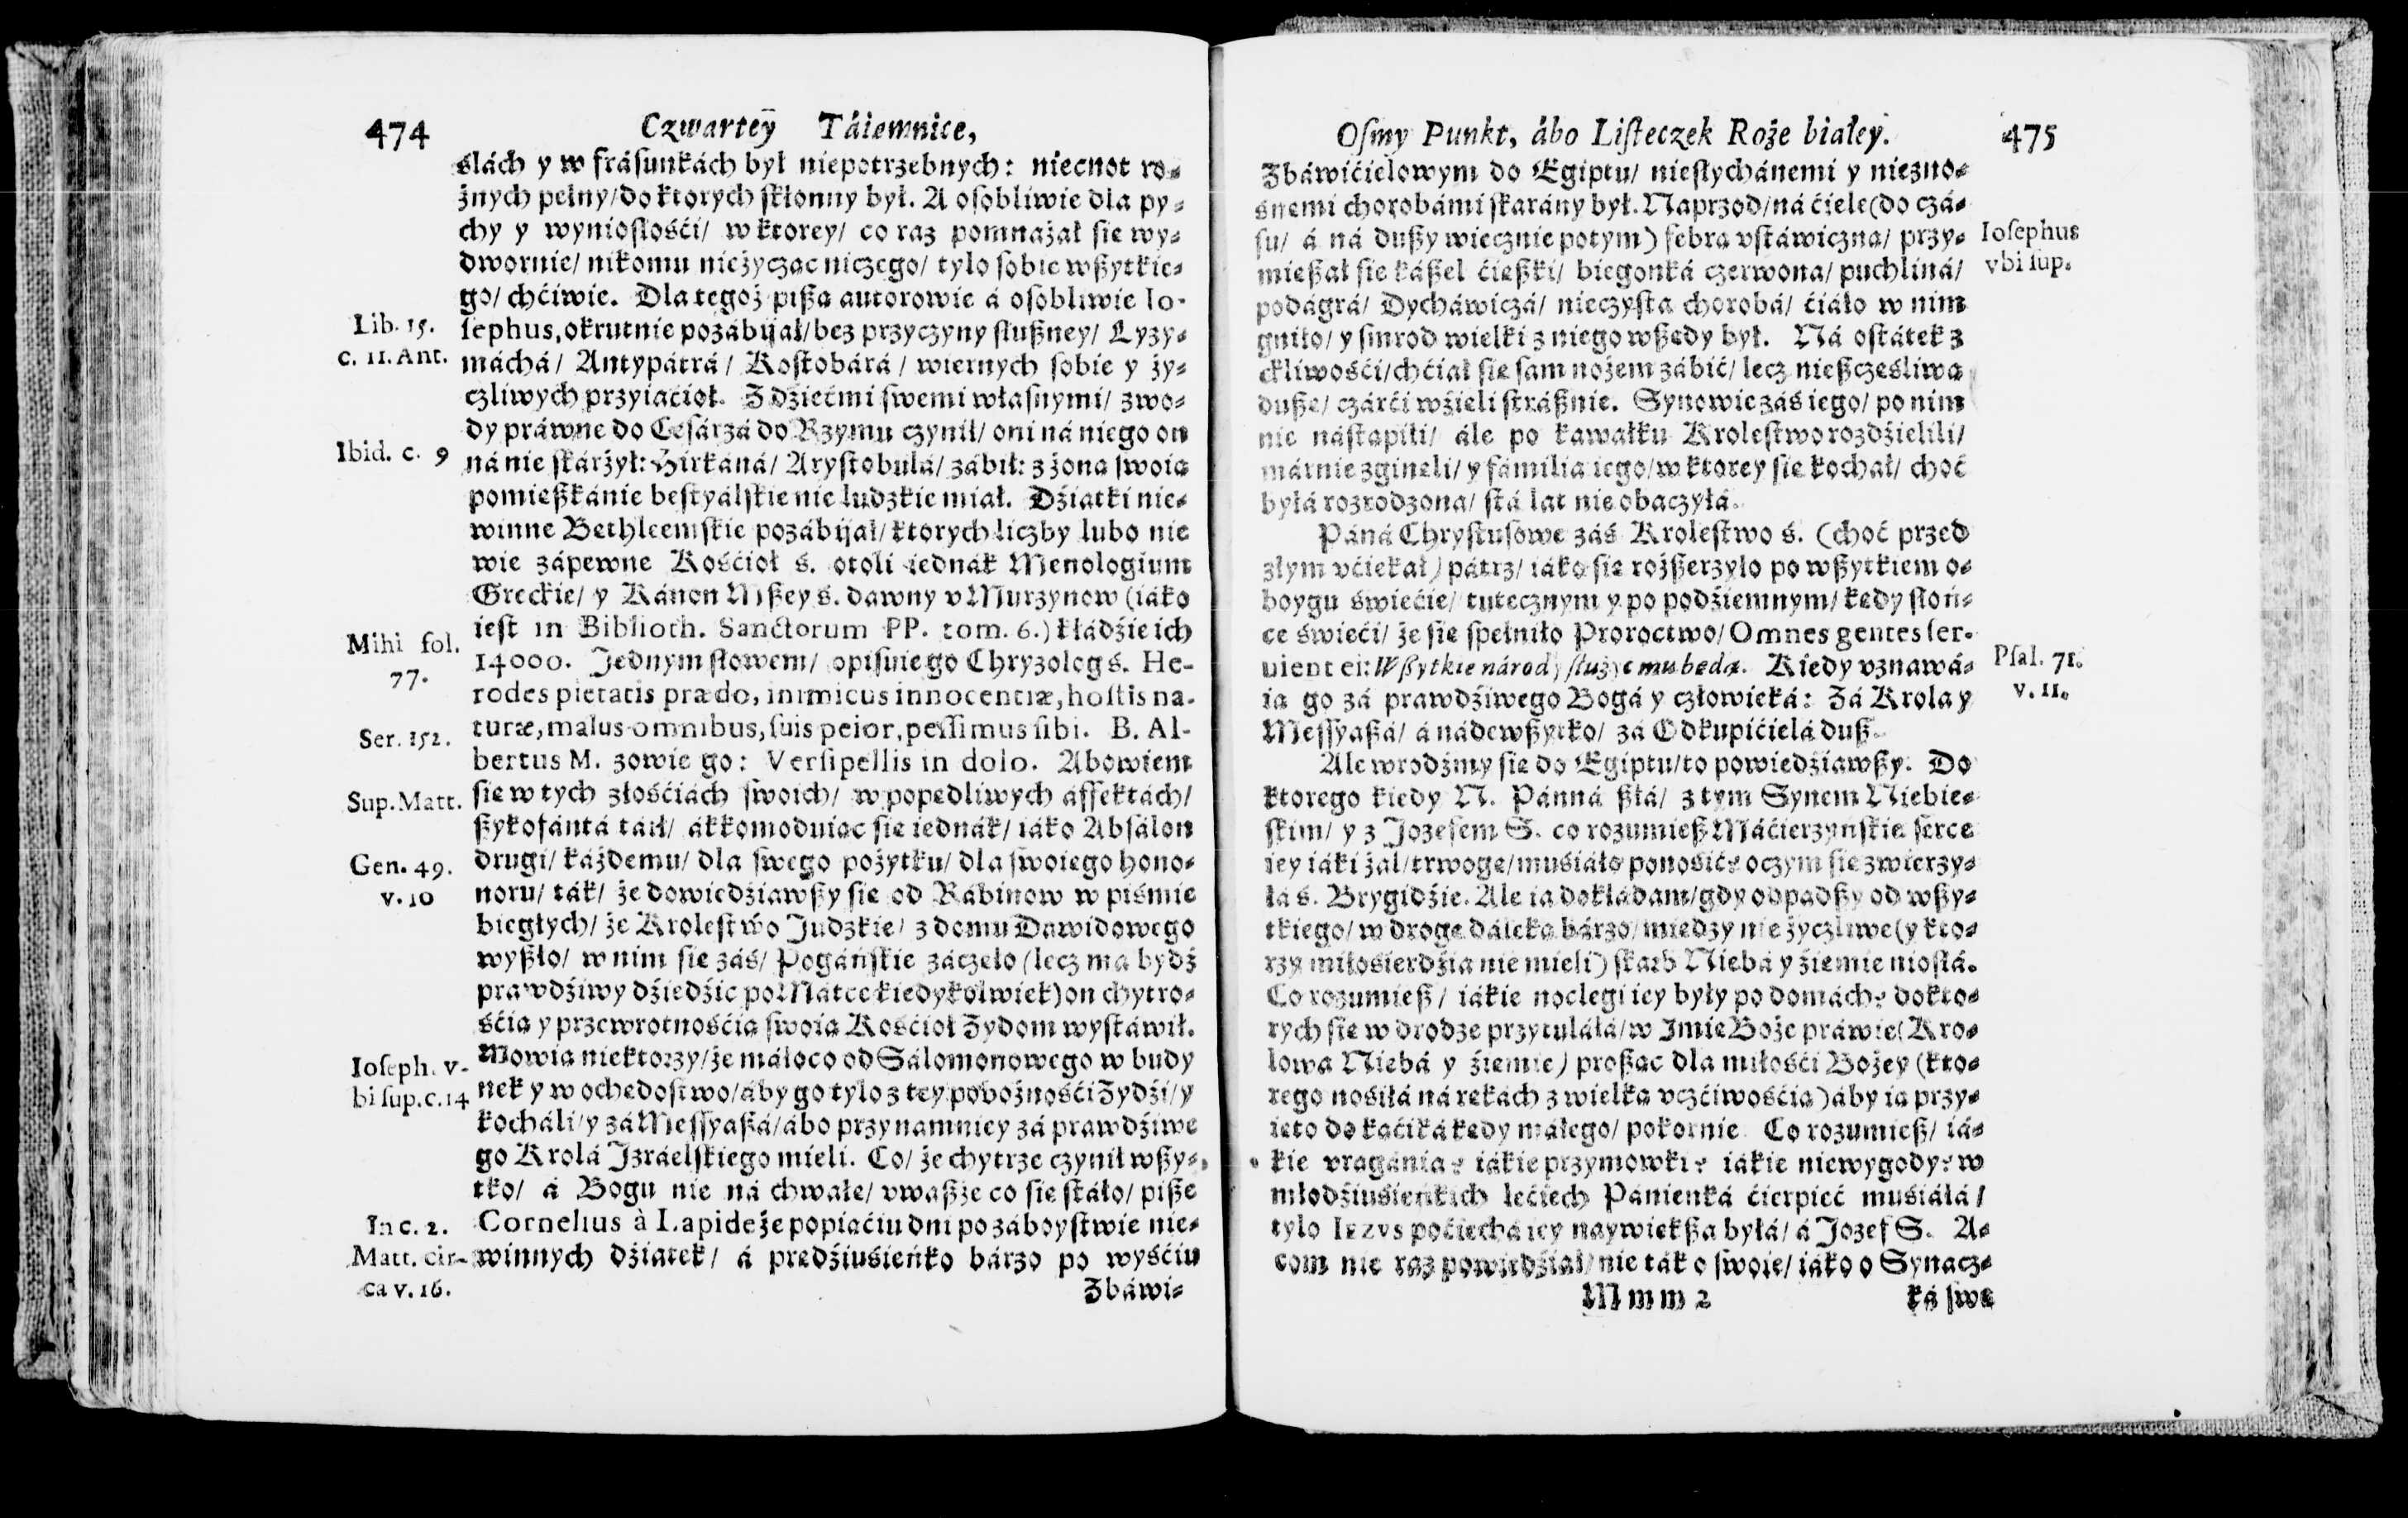 474 Czwartey Táiemnice,
slách y w frásunkách był niepotrzebnych: niecnot ro-
żnych pełny/ do ktorych skłonny był. A osobliwie dla py-
chy y wyniosłości/ w ktorey/ co raz pomnażał sie wy-
dwornie/ nikomu nieżycząc niczego/ tylo sobie wßytkie-
go/ chćiwie. Dla tegoż pißą autorowie á osobliwie Io-
Lib. 15.
sephus, okrutnie pozábijał/ bez przyczyny słußney/ Lyzy-
c. 11. Ant.
máchá/ Antypátrá/ Kostobárá/ wiernych sobie y ży-
czliwych przyiaćioł. Z dźiećmi swemi własnymi/ zwo-
dy práwne do Cesárzá do Rzymu czynił/ oni ná niego on
Ibid. c. 9
ná nie skárżył: Hirkáná/ Arystobulá/ zábił: z żoną swoią
pomießkánie bestyálskie nie ludzkie miał. Dźiatki nie-
winne Bethleemskie pozábijał/ ktorych liczby lubo nie
wie zápewne Kośćioł ś. otoli iednák Menologium
Greckie/ y Kánon Mßey ś. dawny v Murzynow (iáko
iest in Biblioth. Sanctorum PP. tom. 6.) kłádźie ich
Mihi fol. 77.
14000. Jednym słowem/ opisuie go Chryzolog ś. He-
rodes pietatis prædo, inimicus innocentiæ, hostis na-
Ser. 152.
turæ, malus omnibus, suis peior, pessimus sibi. B. Al-
bertus M. zowie go: Versipellis in dolo. Abowiem
Sup. Matt.
sie w tych złośćiách swoich/ w popędliwych áffektách/
ßykofántá táił/ ákkomoduiąc sie iednák/ iáko Absálon
Gen. 49.
drugi/ káżdemu/ dla swego pożytku/ dla swoiego hono-
v. 10
noru/ ták/ że dowiedźiawßy sie od Rábinow w piśmie
biegłych/ że Krolestwo Judzkie/ z domu Dawidowego
wyßło/ w nim sie záś/ Pogáńskie záczęło (lecz ma bydź
prawdźiwy dźiedźic po Mátce kiedykolwiek) on chytro-
śćią y przewrotnośćią swoią Kośćioł Żydom wystáwił.
Ioseph. v-
Mowią niektorzy/ że máło co od Sálomonowego w budy
bi sup. c. 14
nek y w ochędostwo/ áby go tylo z tey pobożnośći Żydźi/ y
kocháli/ y zá Messyaßá/ ábo przynamniey zá prawdźiwe
go Krolá Jzráelskiego mieli. Co/ że chytrze czynił wßy-
tko/ á Bogu nie ná chwałę/ vważże co sie stáło/ piße
In c. 2.
Cornelius à Lapide że po piąćiu dni po záboystwie nie-
Matt. cir-
winnych dźiatek/ á prędźiusieńko bárzo po wyśćiu
ca v. 16.
Zbáwi-
Osmy Punkt, ábo Listeczek Roże białey. 475
Zbáwićielowym do Egiptu/ niesłychánemi y niezno-
śnemi chorobámi skarány był. Naprzod/ ná ćiele (do czá-
su/ á ná dußy wiecznie potym) febra vstáwiczna/ przy-
Iosephus
mießał sie káßel ćießki/ biegonká czerwona/ puchliná/
vbi sup.
podágrá/ Dycháwiczá/ nieczysta chorobá/ ćiáło w nim
gniło/ y smrod wielki z niego wßędy był. Ná ostátek z
ckliwośći/ chćiał sie sam nożem zábić/ lecz nießczęśliwą
dußę/ czárći wźięli stráßnie. Synowie záś iego/ po nim
nie nástąpili/ ále po kawałku Krolestwo rozdźielili/
márnie zginęli/ y fámilia iego/ w ktorey sie kochał/ choć
byłá rozrodzona/ stá lat nie obaczyłá.
Páná Chrystusowe záś Krolestwo ś. (choć przed
złym vćiekał) pátrz/ iáko sie rozßerzyło po wßytkiem o-
boygu świećie/ tutecznym y po podźiemnym/ kędy słoń-
ce świeći/ że sie spełniło Proroctwo/ Omnes gentes ser-
Psal. 71.
vient ei: Wßytkie národy służyć mu będą. Kiedy vznawá-
v. 11.
ią go zá prawdźiwego Bogá y człowieká: Zá Krola y
Messyaßá/ á nádewßytko/ zá Odkupićielá duß.
Ale wrodźmy sie do Egiptu/ to powiedźiawßy. Do
ktorego kiedy N. Pánná ßłá/ z tym Synem Niebie-
skim/ y z Jozefem S. co rozumieß Máćierzyńskie serce
iey iáki żal/ trwogę/ muśiáło ponośić? o czym sie zwierzy-
łá ś. Brygidźie. Ale ia dokładam/ gdy odpadßy od wßy-
tkiego/ w drogę dáleką bárzo/ miedzy nie życzliwe (y kto-
rzy miłośierdźia nie mieli) skarb Niebá y źiemie niosłá.
Co rozumieß/ iákie noclegi iey były po domách? do kto-
rych sie w drodze przytuláłá/ w Jmie Boże práwie (Kro-
lowa Niebá y źiemie) proßąc dla miłośći Bożey (kto-
rego nośiłá ná rękách z wielką vczćiwośćią) áby ią przy-
ięto do kąćiká kędy máłego/ pokornie. Co rozumieß/ iá-
kie vragánia? iákie przymowki? iákie niewygody? w
młodźiusieńkich lećiech Pánienká ćierpieć musiáłá/
tylo Iezvs poćiechą iey naywiekßą byłá/ á Jozef S. A-
com nie raz powiedźiał/ nie ták o swoię/ iáko o Synacz-
Mmm 2 ká swe